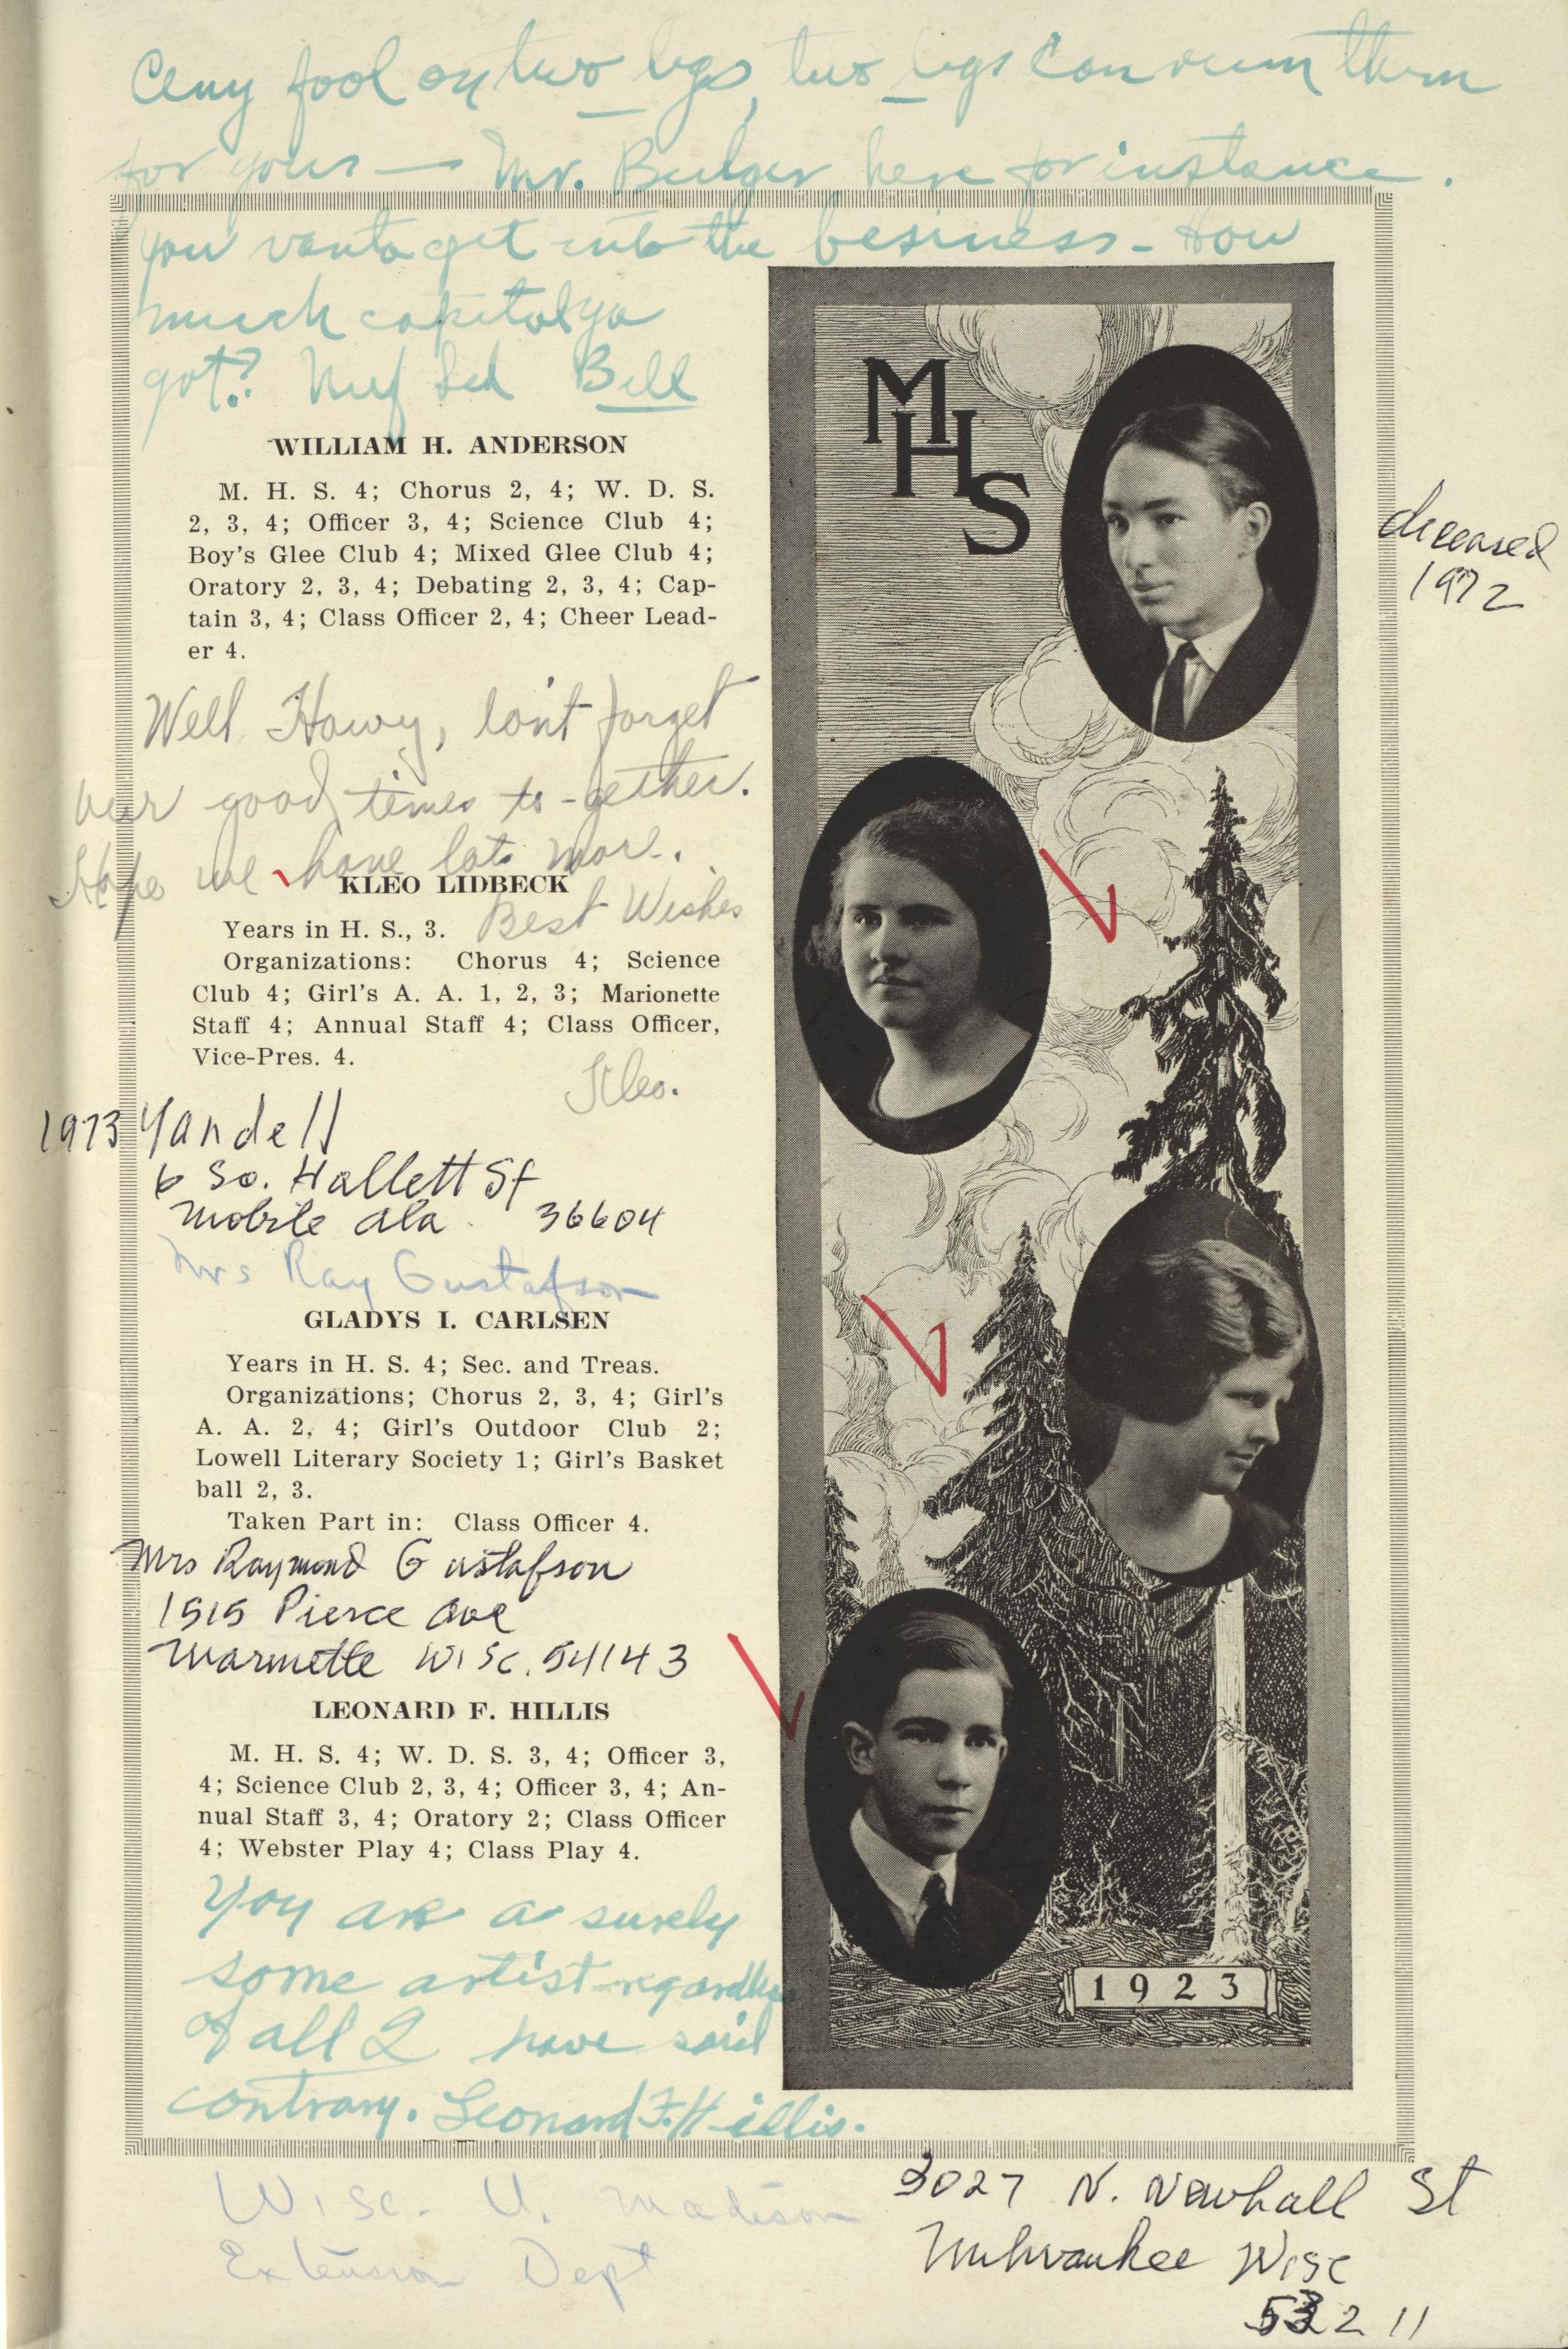 fool on two legs, two legs can
for yours — Mr. Bulger here for instance.
you vanta get into the besiness - How
much capital ya
got? Nuf Sed Bill
WILLIAM H. ANDERSON
M. H. S. 4; Chorus 2, 4; W. D. S.
2, 3, 4; Officer 3, 4; Science Club 4;
Boy's Glee Club 4; Mixed Glee Club 4;
Oratory 2, 3, 4; Debating 2, 3, 4; Cap-
tain 3, 4; Class Officer 2, 4; Cheer Lead-
er 4.
MHS
deceased
1972
Well Howy, don't forget
our good times to-gether.
Hope we have lots more.
KLEO LIDBECK
Best Wishes
Years in H. S., 3.
Organizations: Chorus 4; Science
Club 4; Girl's A. A. 1, 2, 3; Marionette
Staff 4; Annual Staff 4; Class Officer,
Vice-Pres. 4.
Kleo.
1973 Yandell
6 So. Hallett St
Mobile Ala. 36604
Mrs Ray Gustafson
GLADYS I. CARLSEN
Years in H. S. 4; Sec. and Treas.
Organizations; Chorus 2, 3, 4; Girl's
A. A. 2, 4; Girl's Outdoor Club 2;
Lowell Literary Society 1; Girl's Basket
ball 2, 3.
Taken Part in: Class Officer 4.
Mrs Raymond Gustafson
1515 Pierce Ave
Marinette Wisc. 54143
LEONARD F. HILLIS
M. H. S. 4; W. D. S. 3, 4; Officer 3,
4; Science Club 2, 3, 4; Officer 3, 4; An-
nual Staff 3, 4; Oratory 2; Class Officer
4; Webster Play 4; Class Play 4.
You are a surely
some artist regardless
of all I have said
contrary. Leonard F. Hillis.
1923
Wisc. U. Madison
Extension Dept
3027 N. Newhall St
Milwaukee Wisc
53211